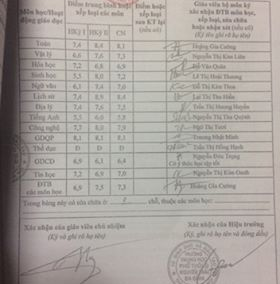 Môn học/Hoạt động giáo dục
Điểm trung bình hoặc xếp loại các môn
HKỳ I HKỳ II CN
Điểm hoặc xếp loại sau KT lại (nếu có)
Giáo viên bộ môn ký xác nhận ĐTB môn học, xếp loại, sửa chữa hoặc nhận xét (nếu có)
(Ký tên ghi rõ họ tên)
Toán 7,6 8,4 8,1 Hoàng Gia Cường
Vật lý 6,6 7,6 7,3 Nguyễn Thị Kim Liên
Hóa học 7,2 6,8 6,9 Đỗ Vân Quân
Sinh học 5,5 8,0 7,2 Lê Thị Hoài Thương
Ngữ văn 6,1 7,4 7,0 Đỗ Thị Kim Thoa
Lịch sử 7,4 8,9 8,4 Lại Thị Thu Hiền
Địa lý 7,4 7,6 7,5 Trần Thị Hương Huyền
Tiếng Anh 5,5 6,0
Công nghệ 7,7 8,0 Ngô Thị Tươi
GDQP 8,1 8,1 8,1 Trương Nhật Minh
Thể dục Đ Đ Đ Trần Thị Hồng Hạnh
GDCD 6,9 6,1 6,4 Nguyễn Đức Trọng
Có ý thức học tập tốt
Tin học 7,2 6,9 7,0 Nguyễn Thị Kim Oanh
ĐTB các môn học 6,9 7,5 7,3 Hoàng Gia Cường
Trong bảng này có sửa chữa ở chỗ, thuộc các môn học:
Xác nhận của giáo viên chủ nhiệm
(Ký và ghi rõ họ tên)
Xác nhận của Hiệu trưởng
(Ký, ghi rõ họ tên và đóng dấu)
TRƯỜNG